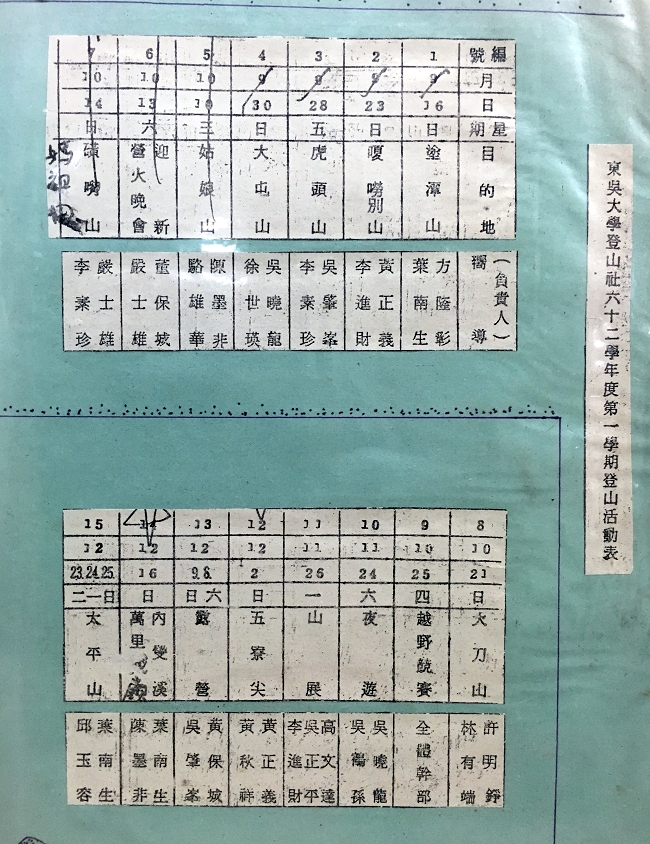 東吳大學登山社六十二學年度第一學期登山活動表
編號 月 日 星期 目的地 嚮導(負責人)
1 9 16 日 塗潭山 方隆彰 葉南生
2 9 23 日 嗄嘮別山 黃正義 李進財
3 9 28 五 虎頭山 吳肇峯 李素珍
4 9 30 日 大屯山 吳曉龍 徐世瑛
5 10 10 三 姑娘山 陳墨非 駱雄華
6 10 13 六 迎新營火晚會 董保城 嚴士雄
7 10 14 日 磺嘮山 嚴士雄 李素珍
8 10 21 日 大刀山 許明錚 林有端
9 10 25 四 越野競賽 全體幹部
10 11 24 六 夜遊 吳曉龍 吳鶴孫
11 11 26 一 山展 高文達 吳正平 李進財
12 12 2 日 五寮尖 黃正義 黃秋祥
13 12 9.8. 日六 露營 黃保城 吳肇峯
14 12 16 日 內雙溪 萬里 葉南生 陳墨非
15 12 23.24.25. 二一日 太平山 葉南生 邱玉容